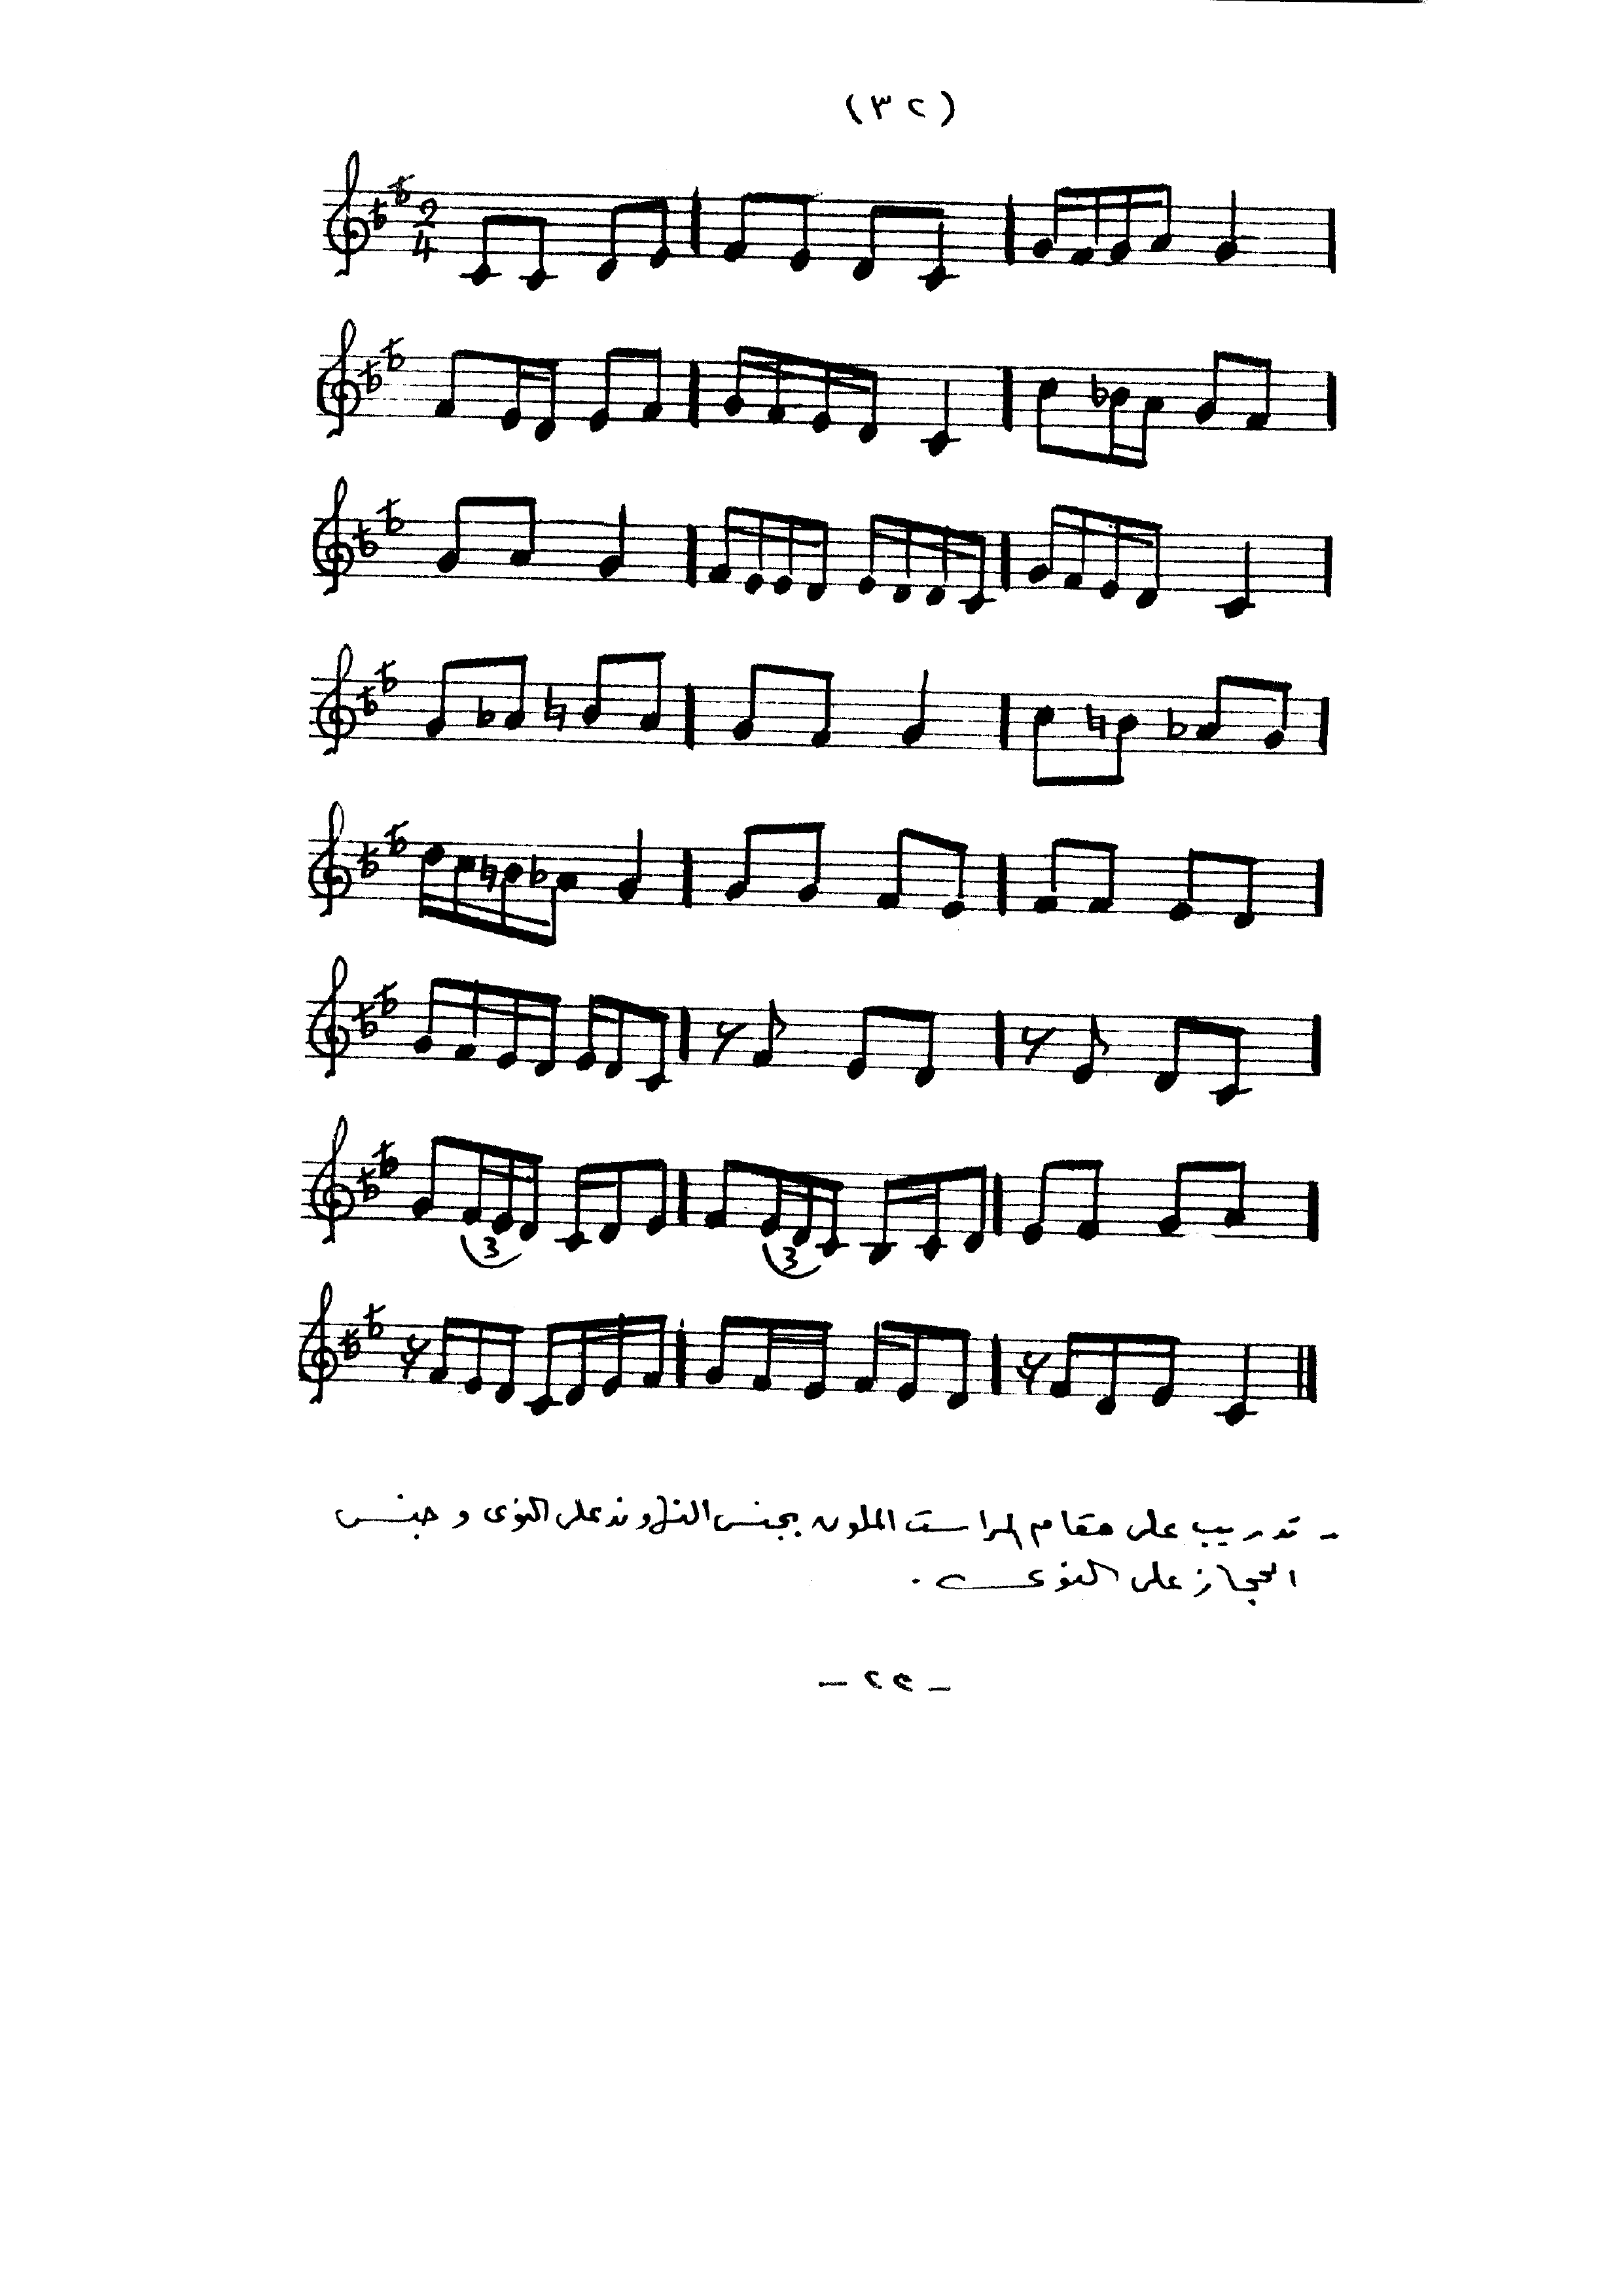 (٣٢)
2
4
3
3
- تدريب على مقام الراست الملون بجنس النهاوند على النوى و جنس
الحجاز على النوى .